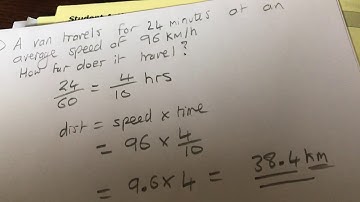 A van travels for 24 minutes at an
average speed of 96 km/h
How far does it travel?
24/60 = 4/10 hrs
dist = speed × time
= 96 × 4/10
= 9.6 × 4 = 38.4 km